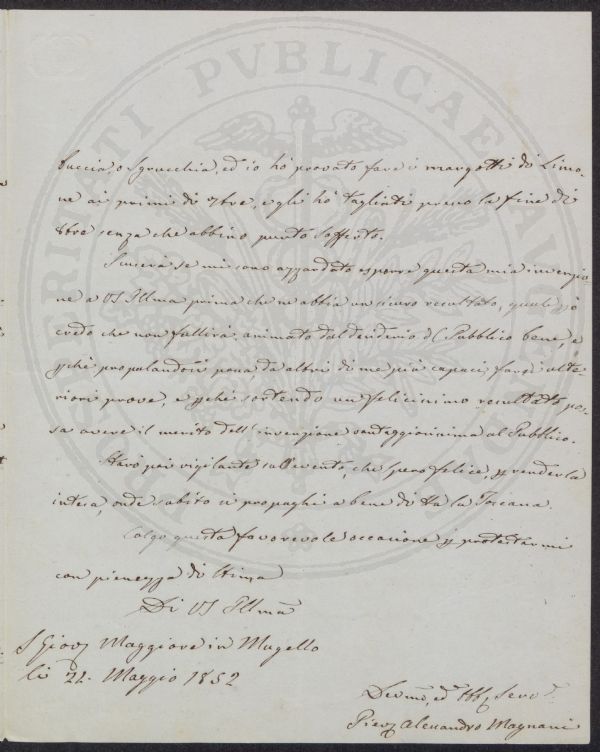 buccia, o Sprucchia, ed io hò provato fare i margotti di Limo-
ne ai primi di 7bre, e gli hò tagliati presso la fine di
8bre senza che abbino punto sofferto.
Scuserà se mi sono azzardato esporre questa mia invenzio-
ne a VS Illma prima che ne abbia un sicuro resultato, quale però
credo che non fallirà, animato dal desiderio del Pubblico bene, e
pchè propalandosi possa da altri di me più capaci farsi ulte-
riori prove, e pchè sortendo un felicissimo resultato pos-
sa avere il merito dell'invenzione vantaggiosissima al Pubblico.
Starò poi vigilante sull'evento, che spero felice, p renderla
intesa, onde subito si propaghi a bene di tta la Toscana.
Colgo questa favorevole occasione p protestarmi
con pienezza di stima
Di VS Illma
S Giov Maggiore in Mugello
li 22. Maggio 1852
Devmo, ed Servre
Piev Alessandro Magnani
PROSPERITATI PVBLICAE AVGENDAE